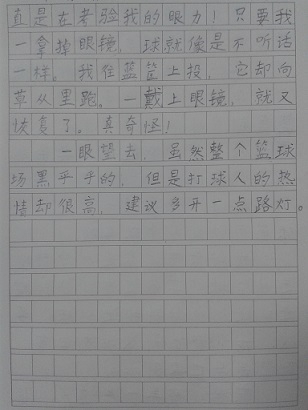 真是在考验我的眼力！只要我
一拿掉眼镜，球就像是不听话
一样。我往篮筐上投，它却向
草丛里跑。一戴上眼镜，就又
恢复了。真奇怪！
一眼望去，虽然整个篮球
场黑乎乎的，但是打球人的热
情却很高，建议多开一点路灯。